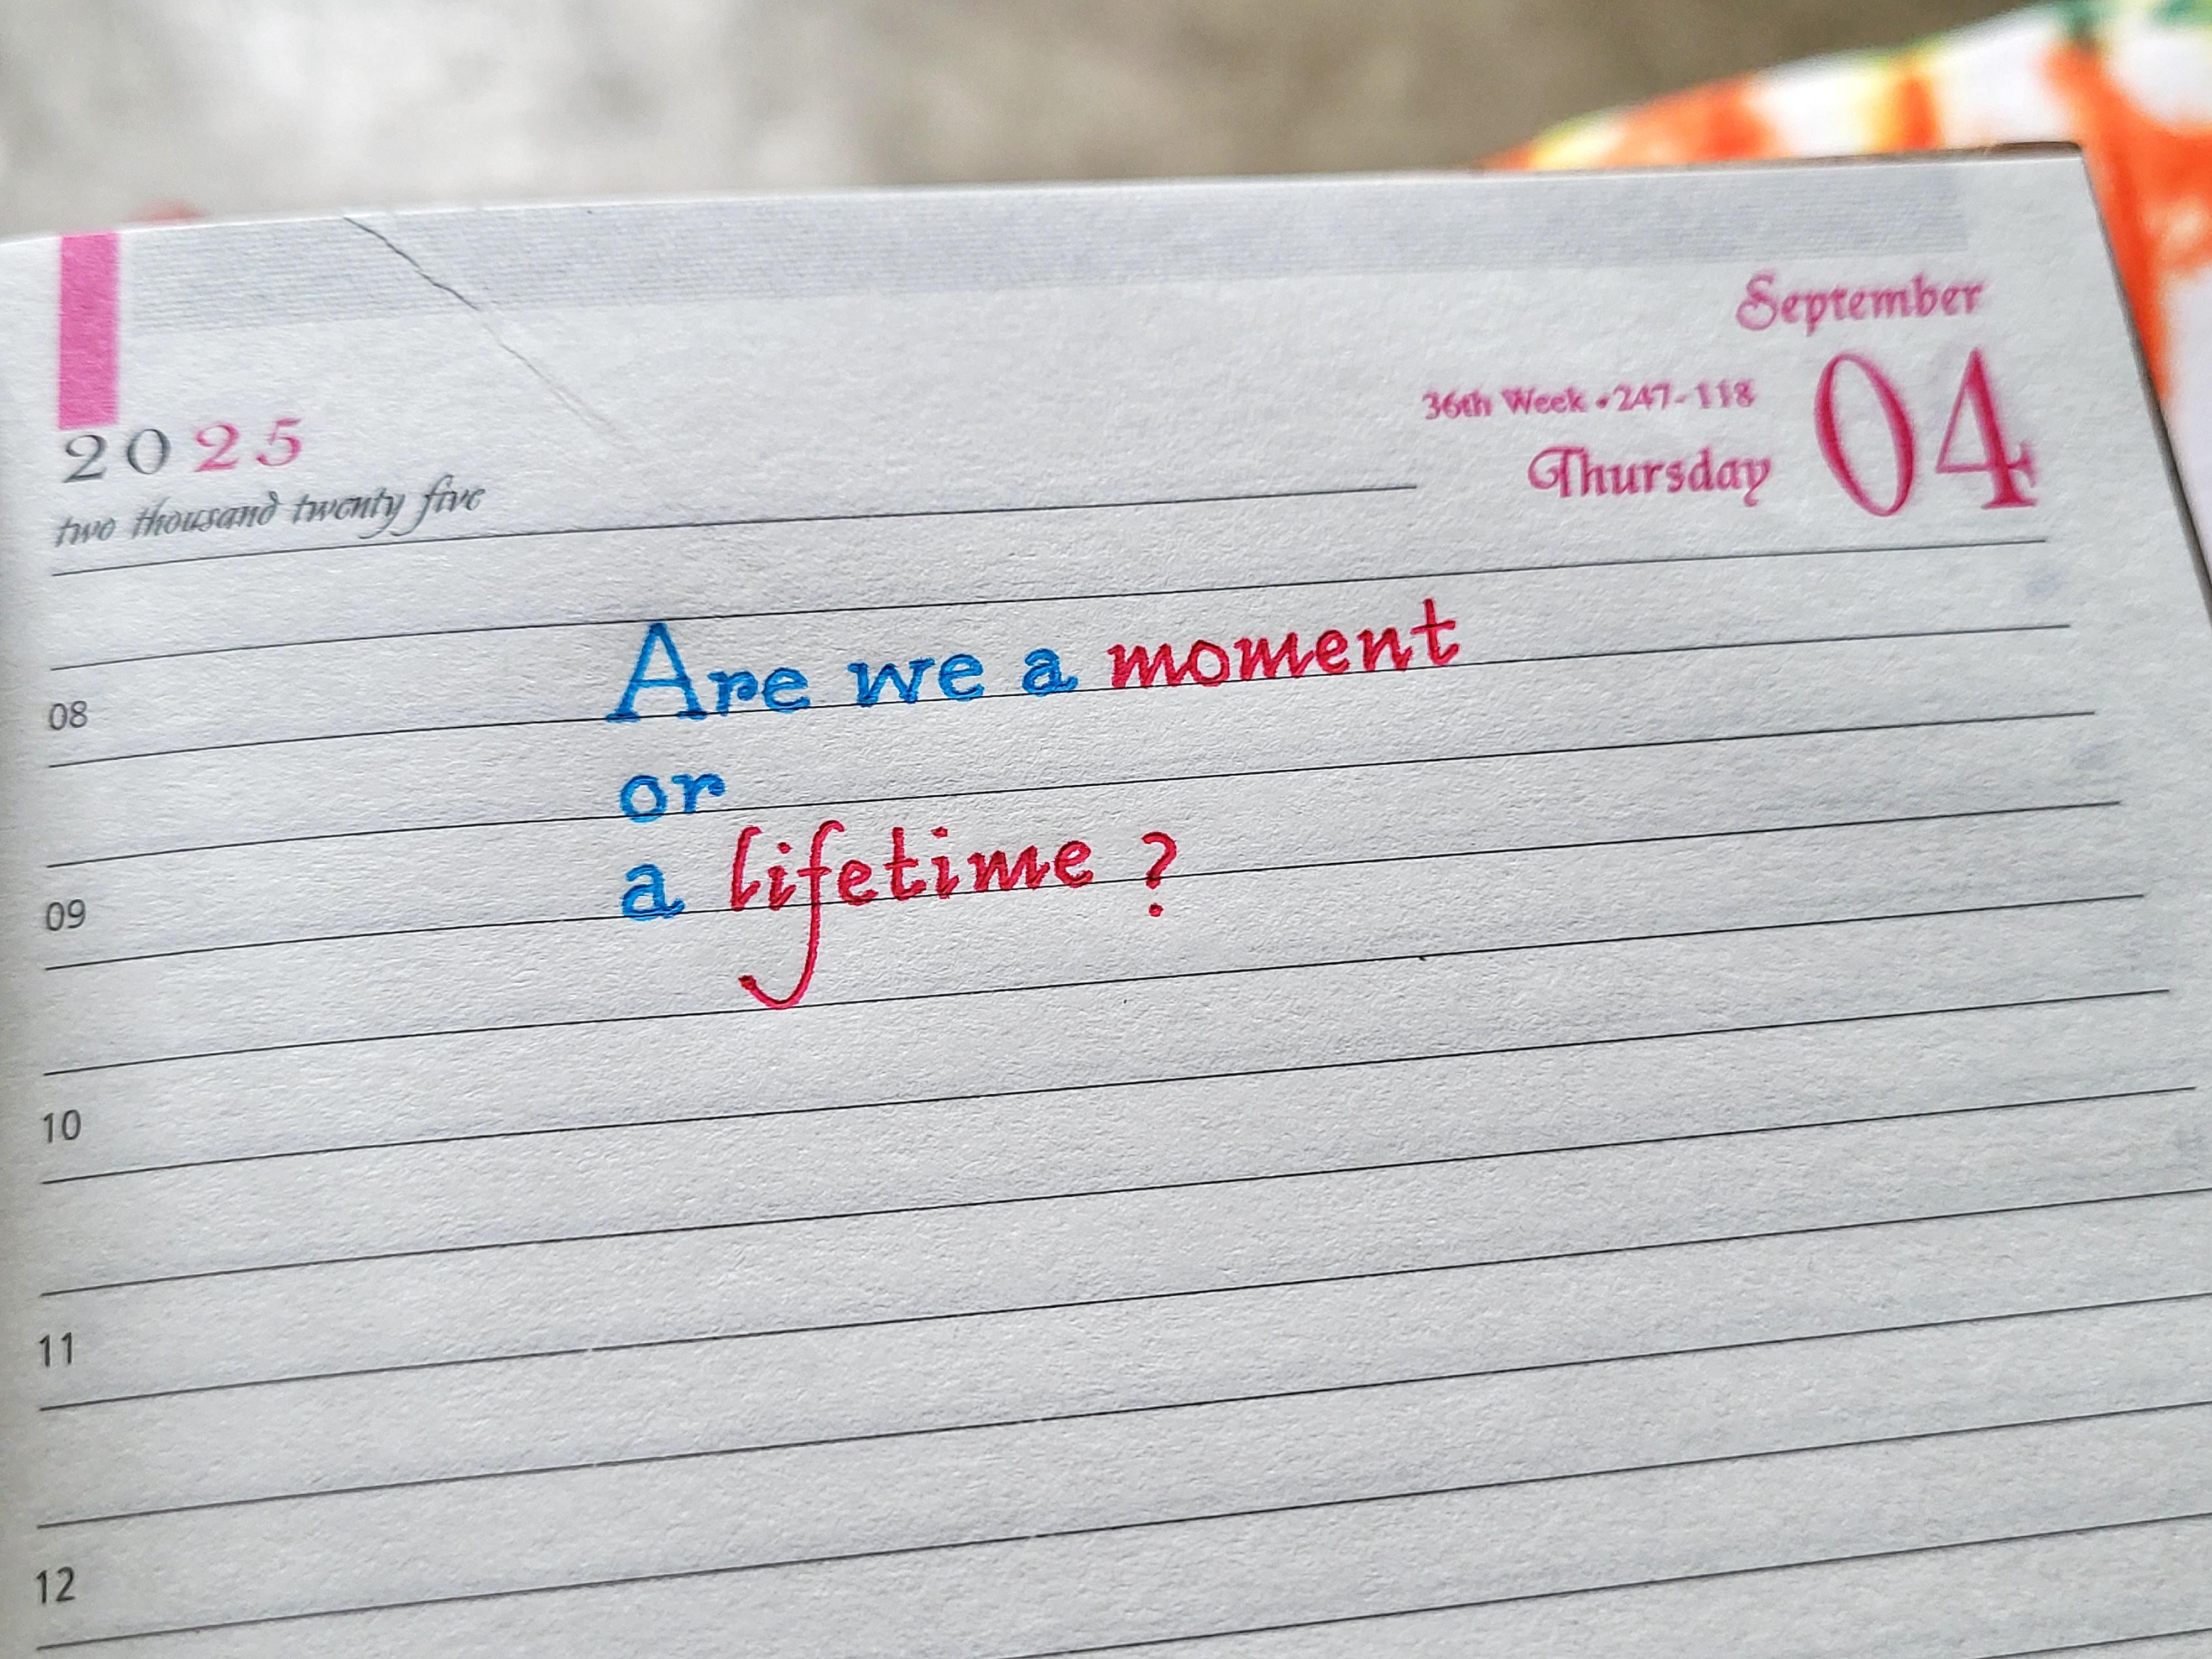 September
2025
36th Week • 247-118
Thursday
04
two thousand twenty five
Are we a moment
08
or
a lifetime ?
09
10
11
12